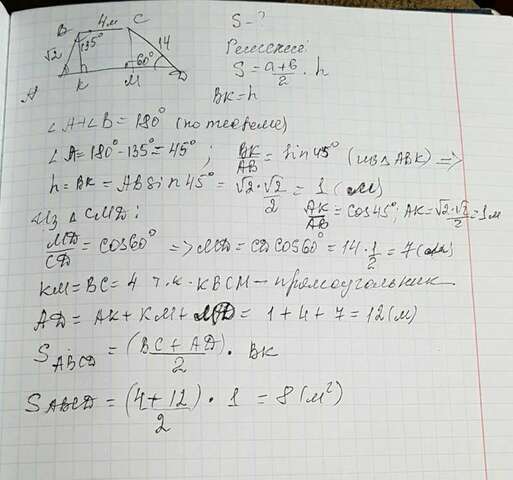 4м
B C
√2 135° 14
60°
A K M D
S - ?
Решение:
S = a+b/2 · h
BK = h
∠A+∠B = 180° (по теореме)
∠A = 180° - 135° = 45° ; BK/AB = sin 45° (из △ABK) =>
h = BK = AB sin 45° = √2·√2/2 = 1 (м)
AK/AB = cos 45°; AK = √2·√2/2 = 1м
Из △CMD:
MD/CD = cos 60° => MD = CD cos 60° = 14 · 1/2 = 7 (м)
KM = BC = 4 т.к. KBCM - прямоугольник
AD = AK + KM + MD = 1 + 4 + 7 = 12 (м)
S ABCD = (BC + AD)/2 · BK
S ABCD = (4 + 12)/2 · 1 = 8 (м²)